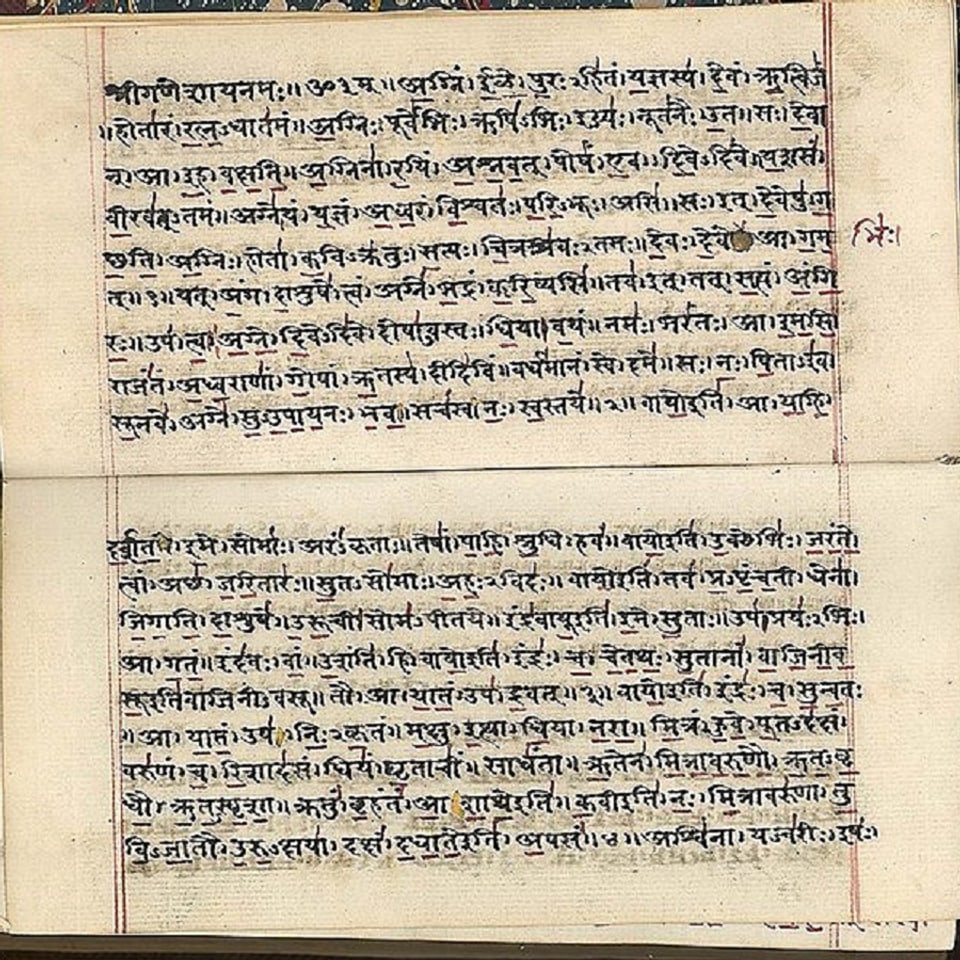 श्रीगणेशायनमः॥ॐ३म्॥अ॒ग्निं।ई॒ळे॒।पु॒रःऽहि॑तं।य॒ज्ञस्य॑।दे॒वं।ऋ॒त्विजं॑
॥होता॑रं।र॒त्न॒ऽधात॑मं॥अ॒ग्निः।पूर्वे॑भिः।ऋषि॑ऽभिः।ईड्यः॑।नूत॑नैः।उ॒त।सः।दे॒वा
न्।आ।इ॒ह।व॒क्ष॒ति॒॥अ॒ग्निना॑।र॒यिं।अ॒श्न॒व॒त्।पोषं॑।ए॒व।दि॒वेऽदि॑वे।य॒शसं॑
वी॒रव॑त्ऽतमं॥अग्ने॑।यं।य॒ज्ञं।अ॒ध्व॒रं।वि॒श्वतः॑।प॒रि॒ऽभूः।असि॑।सः।इत्।दे॒वेषु॑।ग॒
च्छ॒ति॒॥अ॒ग्निः।होता॑।क॒विऽक्र॑तुः।स॒त्यः।चि॒त्रश्र॑वःऽतमः।दे॒वः।दे॒वे आ।ग॒म॒
भिः।
त्॥१॥यत्।अं॒ग।दा॒शुषे॑।त्वं।अग्ने॑।भ॒द्रं।क॒रि॒ष्यसि॑॥तव॑।इत्।तत्।स॒त्यं।अं॒गि॒
रः॒॥उप॑।त्वा॒।अ॒ग्ने॒।दि॒वेऽदि॑वे।दोषा॑ऽवस्तः।धि॒या।व॒यं॥नमः॑।भरं॑तः।आ।इ॒म॒सि॒
राजं॑तं।अ॒ध्व॒राणां॑।गो॒पां।ऋ॒तस्य॑।दीदि॑विं॥वर्ध॑मानं।स्वे।दमे॑॥सः।नः॒।पि॒ताऽइ॑व।
सू॒नवे॑।अग्ने॑।सु॒ऽउ॒पा॒य॒नः।भ॒व॒॥सच॑स्व।नः॒।स्व॒स्तये॑॥२॥वायो॒इति॑।आ।या॒हि॒
द॒र्श॒त॒।इ॒मे।सोमाः॑।अरं॑ऽकृताः॥तेषां॑।पा॒हि॒।श्रु॒धि।हवं॑॥वायो॒इति॑।उ॒क्थेभिः॑।ज॒रं॒ते॒
त्वां।अच्छ॑।ज॒रि॒तारः॑॥सु॒तऽसो॑माः।अ॒हः॒ऽविदः॑॥वायो॒इति॑।तव॑।प्र॒ऽपृं॒च॒ती।धेना॑।
जि॒गा॒ति॒।दा॒शुषे॑॥उ॒रू॒ची।सोम॑ऽपीतये॥इंद्र॑वायू॒इति॑।इ॒मे।सु॒ताः॥उप॑।प्रयः॑ऽभिः।
आ।ग॒तं॒॥इंद॑वः।वां॒।उ॒शंति॑।हि॥वायो॒इति॑।इंद्रः॑।च॒।चे॒त॒थः॒।सु॒तानां॑।वा॒जि॒नी॒व॒
सू॒इति॑वाजिनीऽवसू॥तौ।आ।या॒तं॒।उप॑।द्र॒वत्॥३॥वायो॒इति॑।इंद्रः॑।च॒।सु॒न्व॒तः
॥आ।या॒तं॒।उप॑।निः॒ऽकृ॒तं॥म॒क्षु।इ॒त्था।धि॒या।न॒रा॒॥मि॒त्रं।हु॒वे॒।पू॒तऽद॑क्षं।
वरु॑णं।च॒।रि॒शाद॑सं॥धियं॑।घृ॒ताचीं॑।साधं॑ता॥ऋ॒तेन॑।मि॒त्रा॒व॒रु॒णौ॒।ऋ॒त॒ऽवृ॒
धौ॒।ऋ॒त॒ऽस्पृ॒शा॒॥क्रतुं॑।बृ॒हंतं॑।आ॒शा॒थे॒इति॑॥क॒वीइति॑।नः॒।मि॒त्रावरु॑णा।तु॒
वि॒ऽजा॒तौ।उ॒रु॒ऽक्षया॑॥दक्षं॑।द॒धा॒ते॒इति॑।अ॒पसं॑॥४॥अश्वि॑ना।यज्व॑रीः।इषः॑।